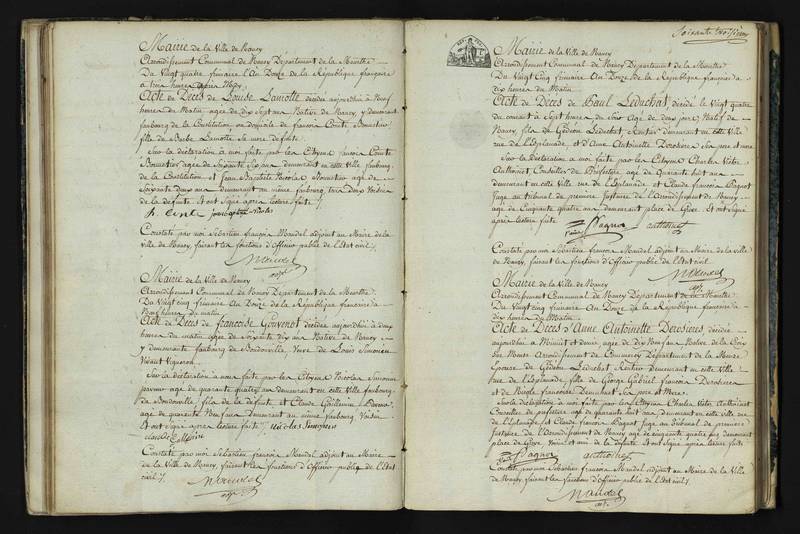 Mairie de la Ville de Nancy
Arrondissement Communal de Nancy Département de la Meurthe
Du Vingt quatre frimaire l'An Douze de la République française
à trois heures après Midy
Acte de Décès de Louise Lamotte décédée aujourd'hui à Neuf
heures du Matin agée de dix Sept ans Native de Nancy y demeurant
faubourg de la Constitution au domicile de françois Comte
fille de Barbe Lamotte
Sur la déclaration à moi faite par les Citoyens françois Comte
agé de Soixante Six ans demeurant en cette Ville faubourg
de la Constitution et Jean Baptiste Nicolas agé de
Soixante deux ans demeurant au même faubourg, tous deux Voisins
de la défunte et ont Signé après lecture faite
Constaté par moi Sébastien françois Mandel adjoint au Maire de la
ville de Nancy, faisant les fonctions d'Officier public de l'Etat civil
Mandel
adjt
Mairie de la Ville de Nancy
Arrondissement Communal de Nancy Département de la Meurthe
Du Vingt cinq frimaire An Douze de la République française à
heures du matin
Acte de Décès de francoise Gouvenot décédée aujourd'hui à deux
heures du matin agée de soixante dix ans Native de Nancy
y demeurant faubourg de Boudonville, Veuve de Louis Simonin
Vivant Vigneron
Sur la déclaration à nous faite par les Citoyens Nicolas Simonin
agé de quarante quatre ans demeurant en cette Ville faubourg
de Boudonville, fils de la défunte et Claude
agé de quarante Neuf ans demeurant au même faubourg, Voisin
Et ont Signé après lecture faite nicolas simonin
Constaté par moi Sébastien françois Mandel adjoint au Maire
de la Ville de Nancy, faisant les fonctions d'Officier public de l'Etat
civil
Mandel
adjt
Soixante troisième
Mairie de la Ville de Nancy
Arrondissement Communal de Nancy Département de la Meurthe
Du Vingt Cinq frimaire An Douze de la République française à
dix heures du Matin
Acte de Décès de Paul Leduchat, décédé le Vingt quatre
du courant à Sept heures du Soir agé de deux jours, Natif de
Nancy, fils de Gédéon Leduchat, Rentier demeurant en cette Ville
rue de l'Esplanade, et d'Anne Antoinette Derosieres Ses père et mère
Sur la déclaration à moi faite par les Citoyens Charles Victor
Authoinet, Conseiller de Préfecture agé de Quarante huit ans
demeurant en cette ville rue de l'Esplanade et Claude francois Pagnot
Juge au tribunal de première Instance de l'Arrondissement de Nancy
agé de Cinquante quatre ans demeurant place de Grève. Et ont signé
après lecture faite
Pagnot authoinet
Constaté par moi Sébastien francois Mandel adjoint au Maire de la ville
de Nancy, faisant les fonctions d'Officier public de l'Etat civil
Mandel
adjt
Mairie de la Ville de Nancy
Arrondissement Communal de Nancy Département de la Meurthe
Du Vingt cinq frimaire An Douze de la République française à
dix heures du Matin
Acte de Décès d'Anne Antoinette Derosieres décédée
aujourd'hui à Minuit et demie agée de dix Neuf ans Native de la Croix
Sur Meuse Arrondissement de Commercy Département de la Meuse
Epouse de Gédéon Leduchat Rentier demeurant en cette Ville
rue de l'Esplanade, fille de George Gabriel francois Derosieres
et de Nicole françoise Ses père et Mère
Sur la déclaration à moi faite par les Citoyens Charles Victor Authoinet
Conseiller de préfecture agé de quarante huit ans demeurant en cette ville rue
de l'Esplanade et Claude francois Pagnot Juge au tribunal de première
Instance de l'Arrondissement de Nancy agé de cinquante quatre ans demeurant
place de Grève Voisins et amis de la défunte Et ont Signé après lecture faite
Pagnot authoinet
Constaté par moi Sébastien francois Mandel adjoint au Maire de la Ville
de Nancy, faisant les fonctions d'Officier public de l'Etat civil
Mandel
adjt